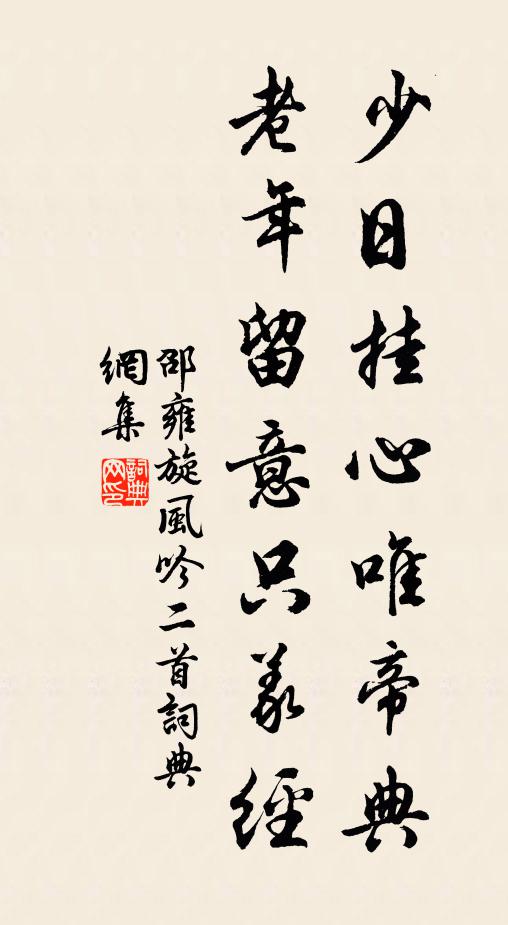 少日挂心唯帝典
老年留意只羲經
邵雍旋風吟二首詞典
網集
詞典网印